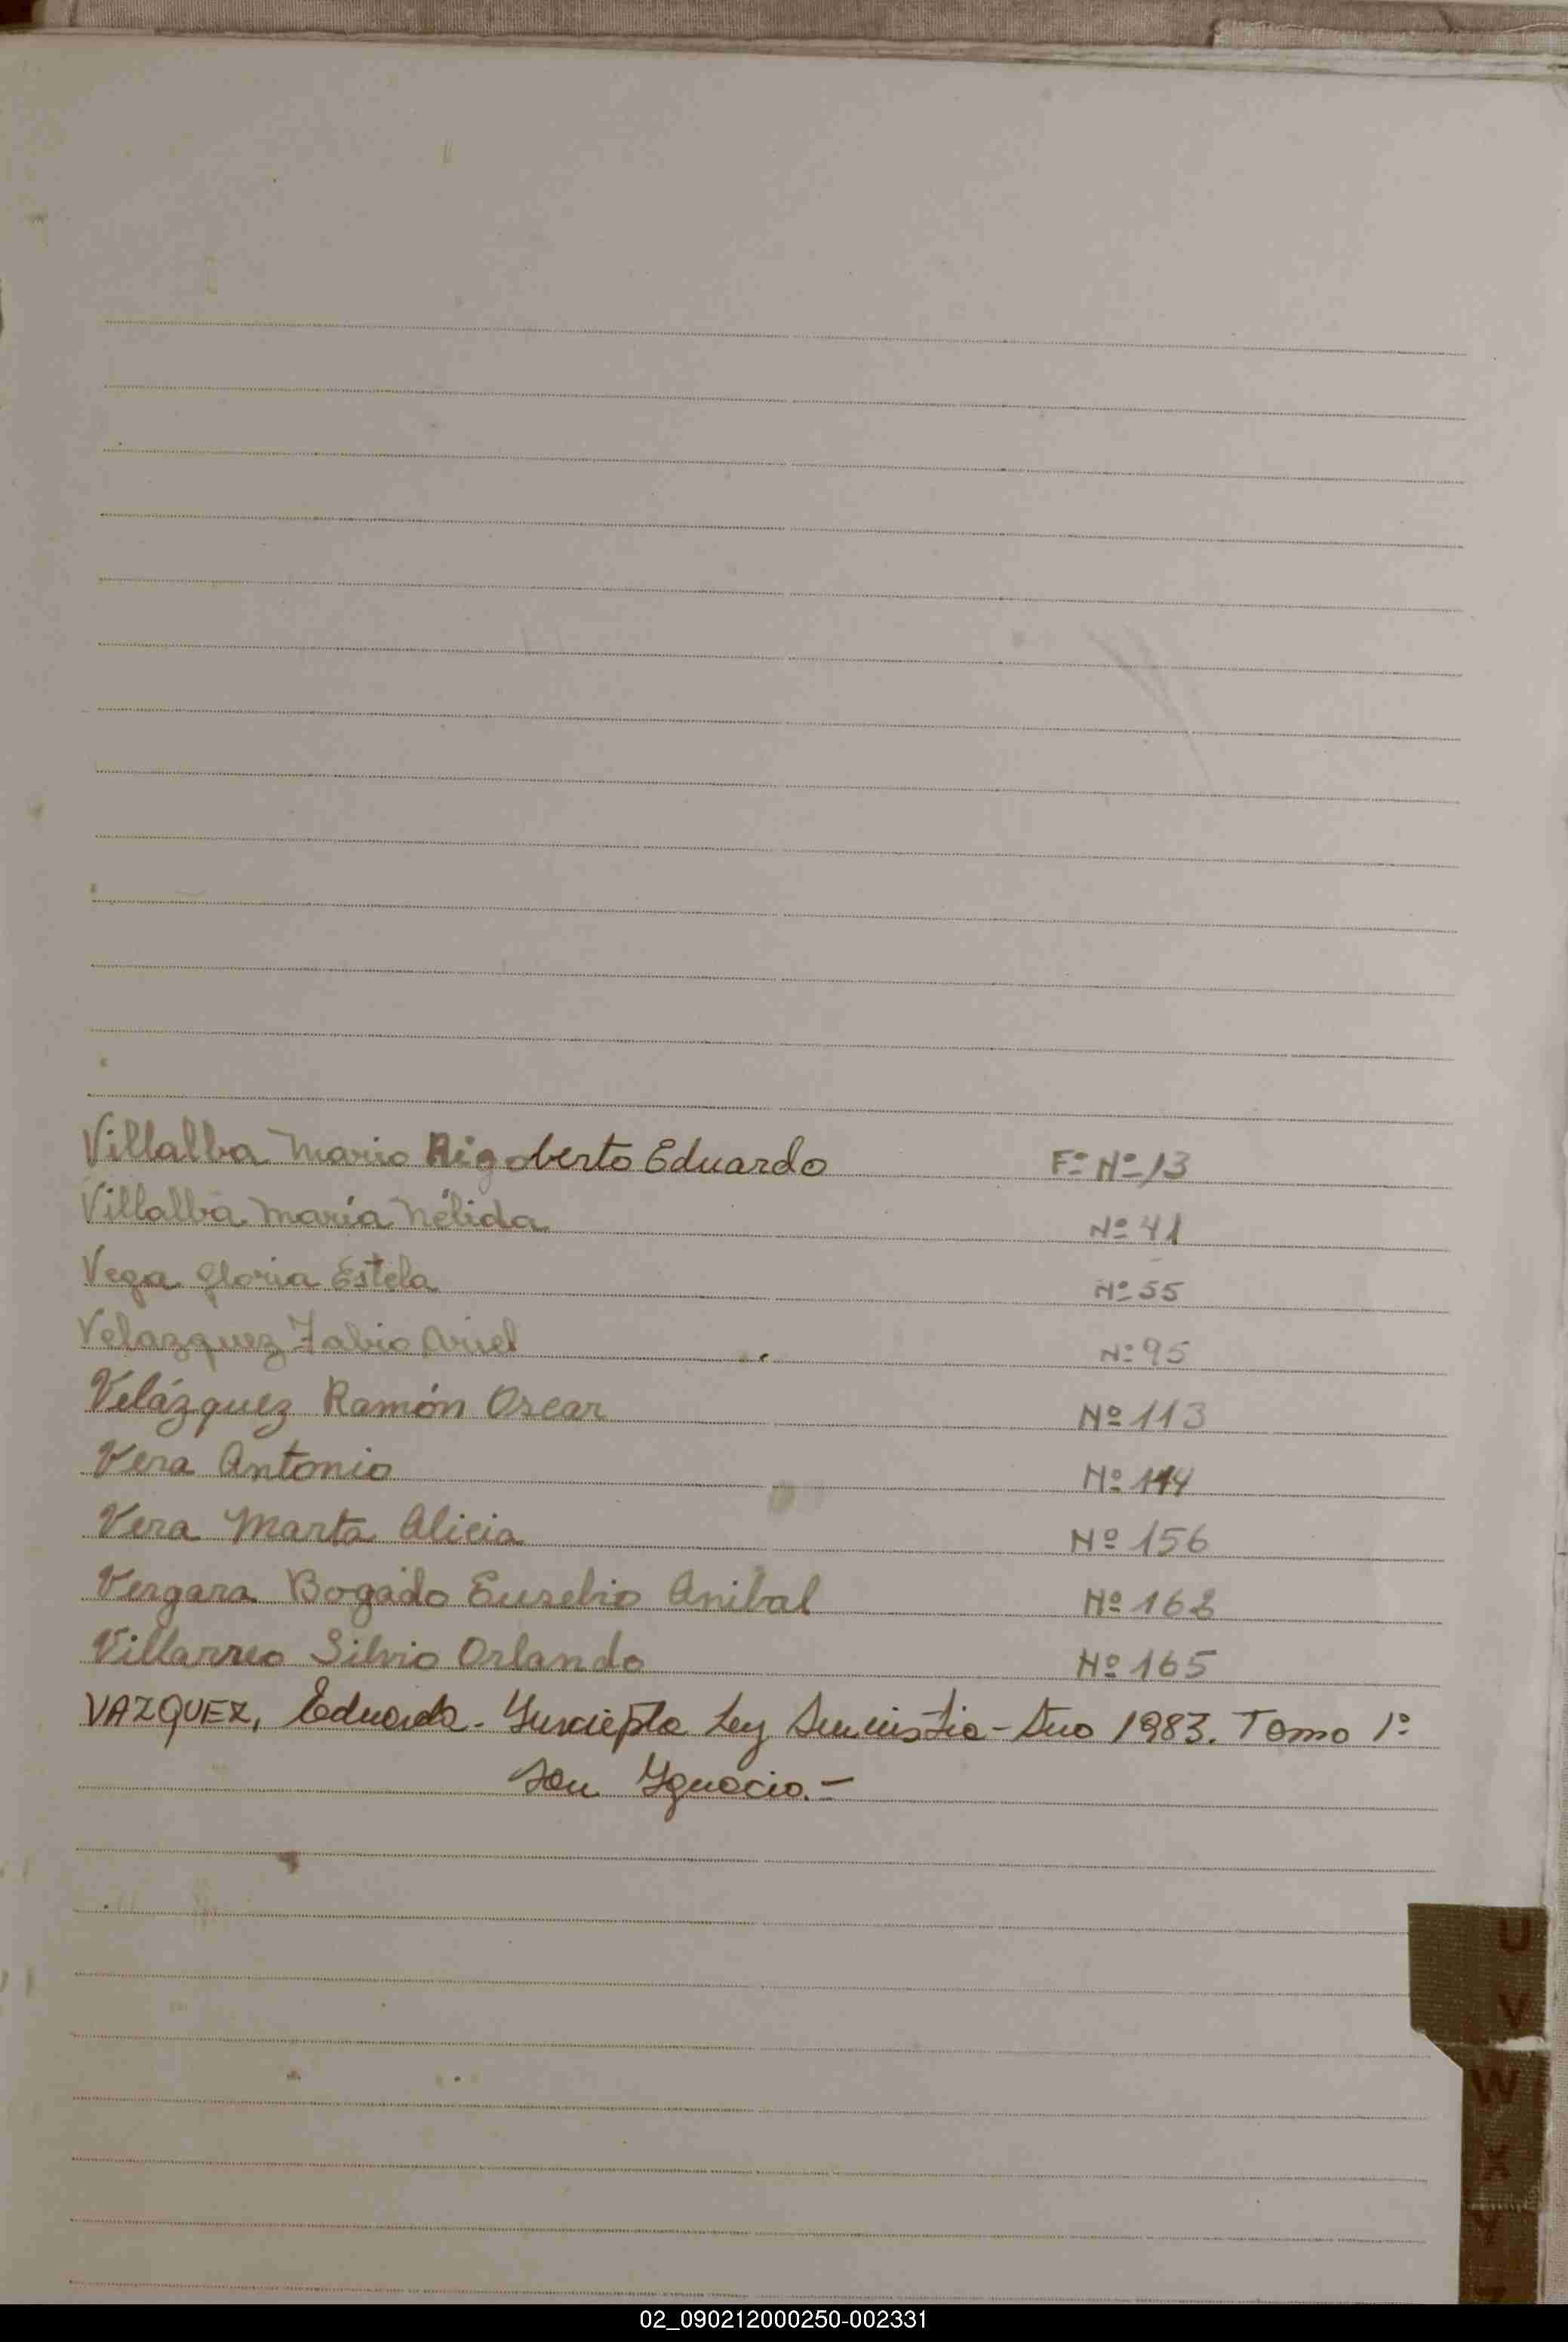 Villalba Mario Rigoberto Eduardo F= Nº 13
Villalba María Nélida Nº 41
Vega Gloria Estela Nº 55
Velazquez Fabio Ariel Nº 95
Velázquez Ramón Oscar Nº 113
Vera Antonio Nº 144
Vera Marta Alicia Nº 156
Vergara Bogado Eusebio Anibal Nº
Villarreo Silvio Orlando Nº 165
VAZQUEZ, Eduarda. Inscripta Ley Amnistia - Año 1983. Tomo 1º
San Ignacio. -
U
V
W
X
Y
Z
02_090212000250-002331